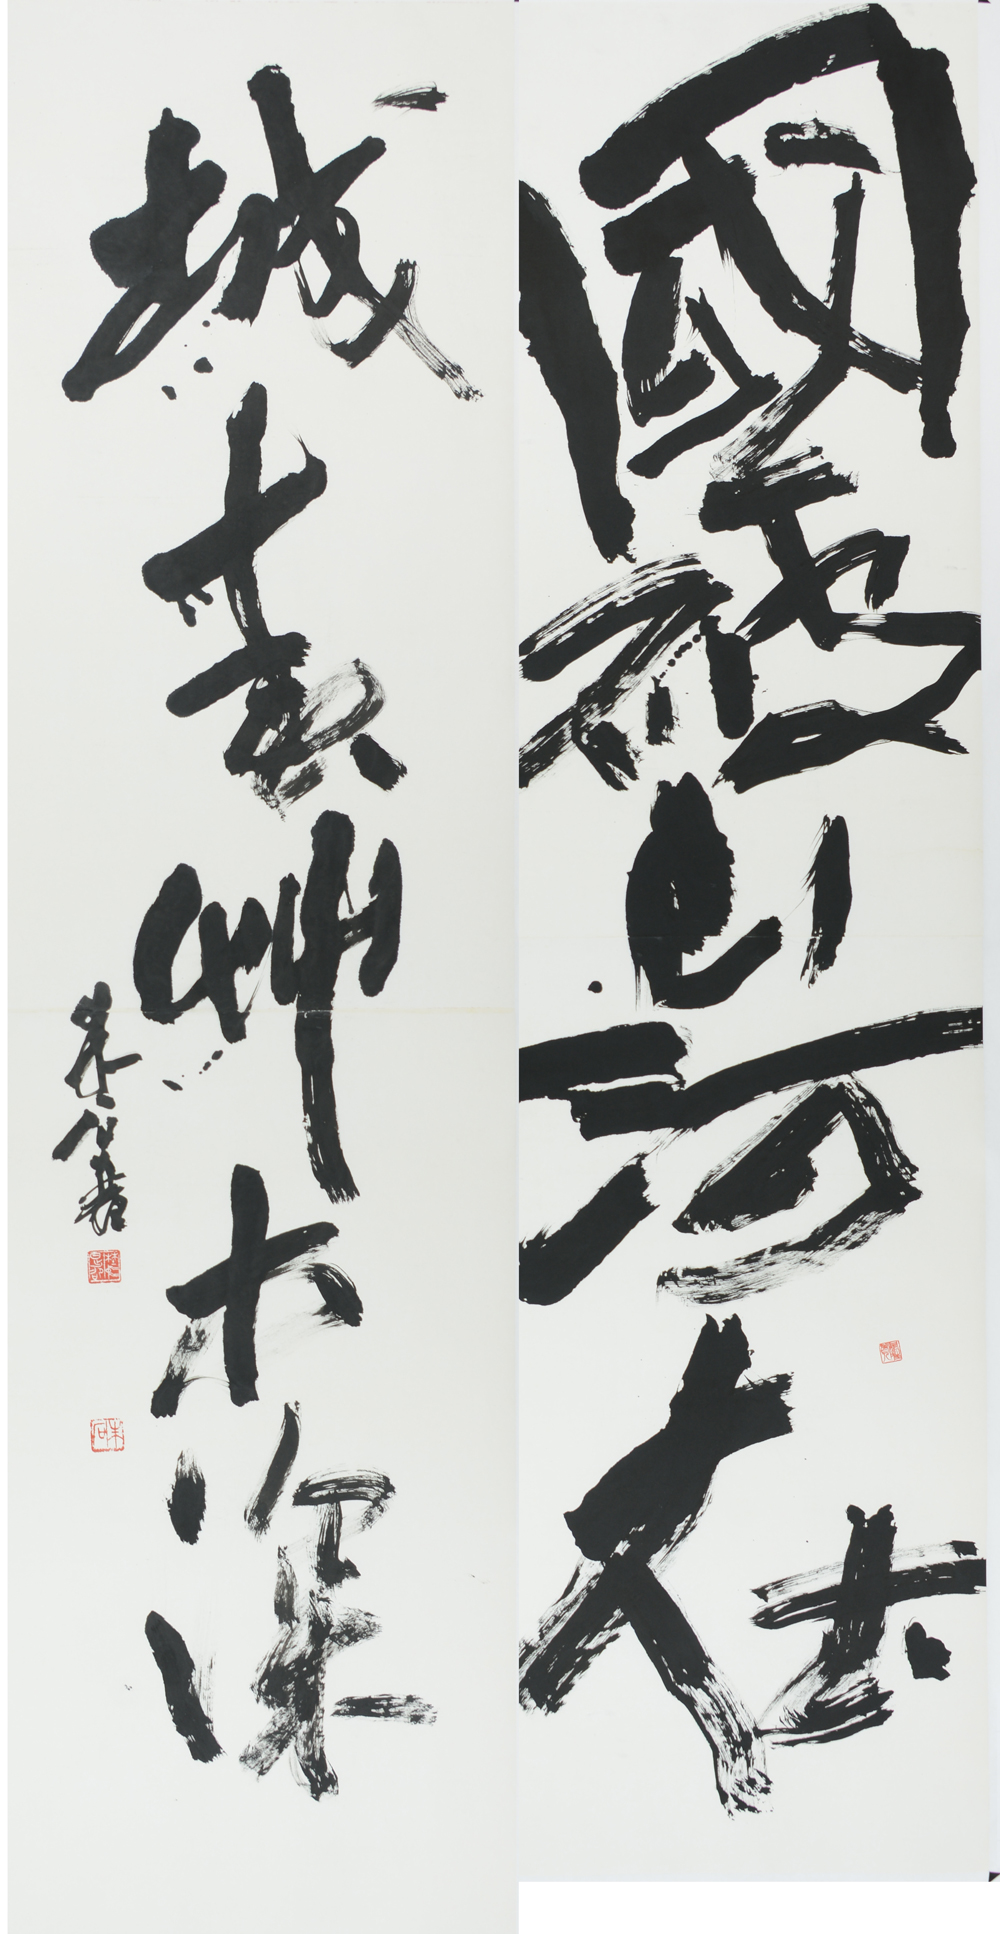 國破山河在
城春艸木深